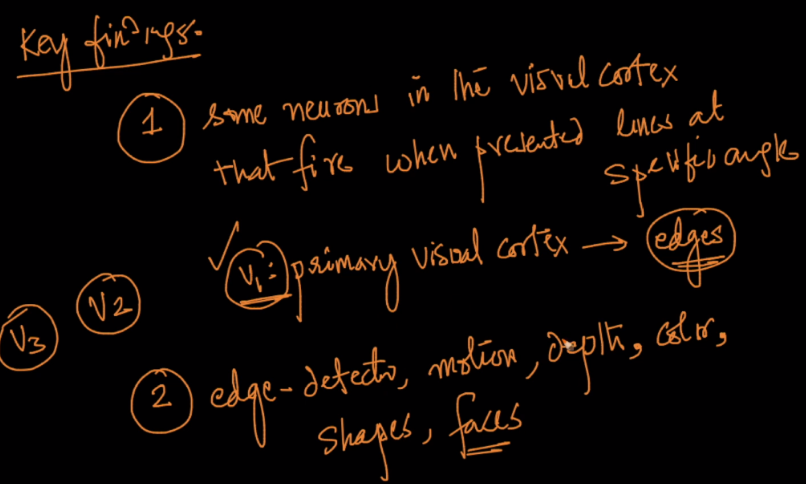 Key findings.
1 some neurons in the visual cortex
that fire when presented lines at
specific angle
✓ V1: primary visual cortex → edges
V2
V3
2 edge-detector, motion, depth, color,
shapes, faces